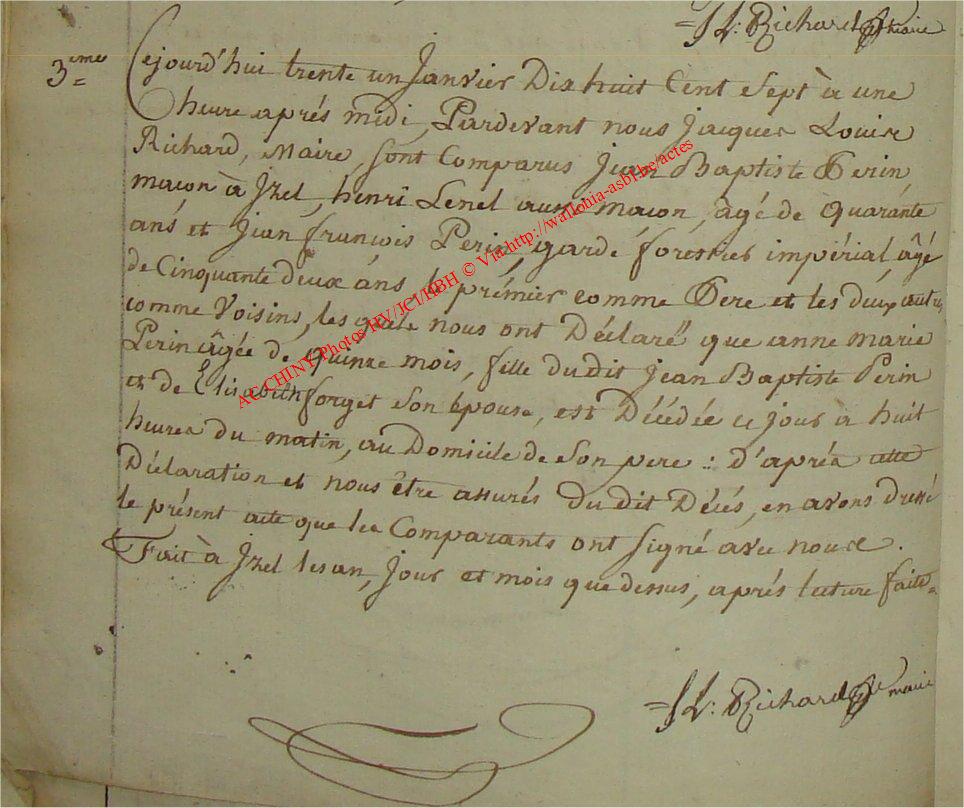 =JL: Richard maire
3eme
Cejourd'hui trente un Janvier Dix huit Cent Sept à une
heure aprés midi, Pardevant nous Jacques Louis
Richard, Maire, sont Comparus Jean Baptiste Perin
macon à Izel, henri Lenel aussi macon, agé de Quarante
ans et Jean françois Perin, garde forestier impérial âgé
de Cinquante deux ans le prémier comme Pere et les deux autres
comme Voisins, les quels nous ont Déclaré que anne marie
Perin âgée de quinze mois, fille du dit Jean Baptiste Perin
et de Elisabeth forget Son épouse, est Décédée ce jour à huit
heures du matin, au Domicile de Son pere : d'aprés cette
Déclaration et nous être assurés du dit Décés, en avons dressé
le présent acte que les Comparants ont signé avec nous.
Fait à Izel les an, jour et mois que dessus, aprés lecture faite=
=JL: Richard maire
AC CHINY Photos HV/JCl/HBH © Via http://wallonia-asbl.be/actes